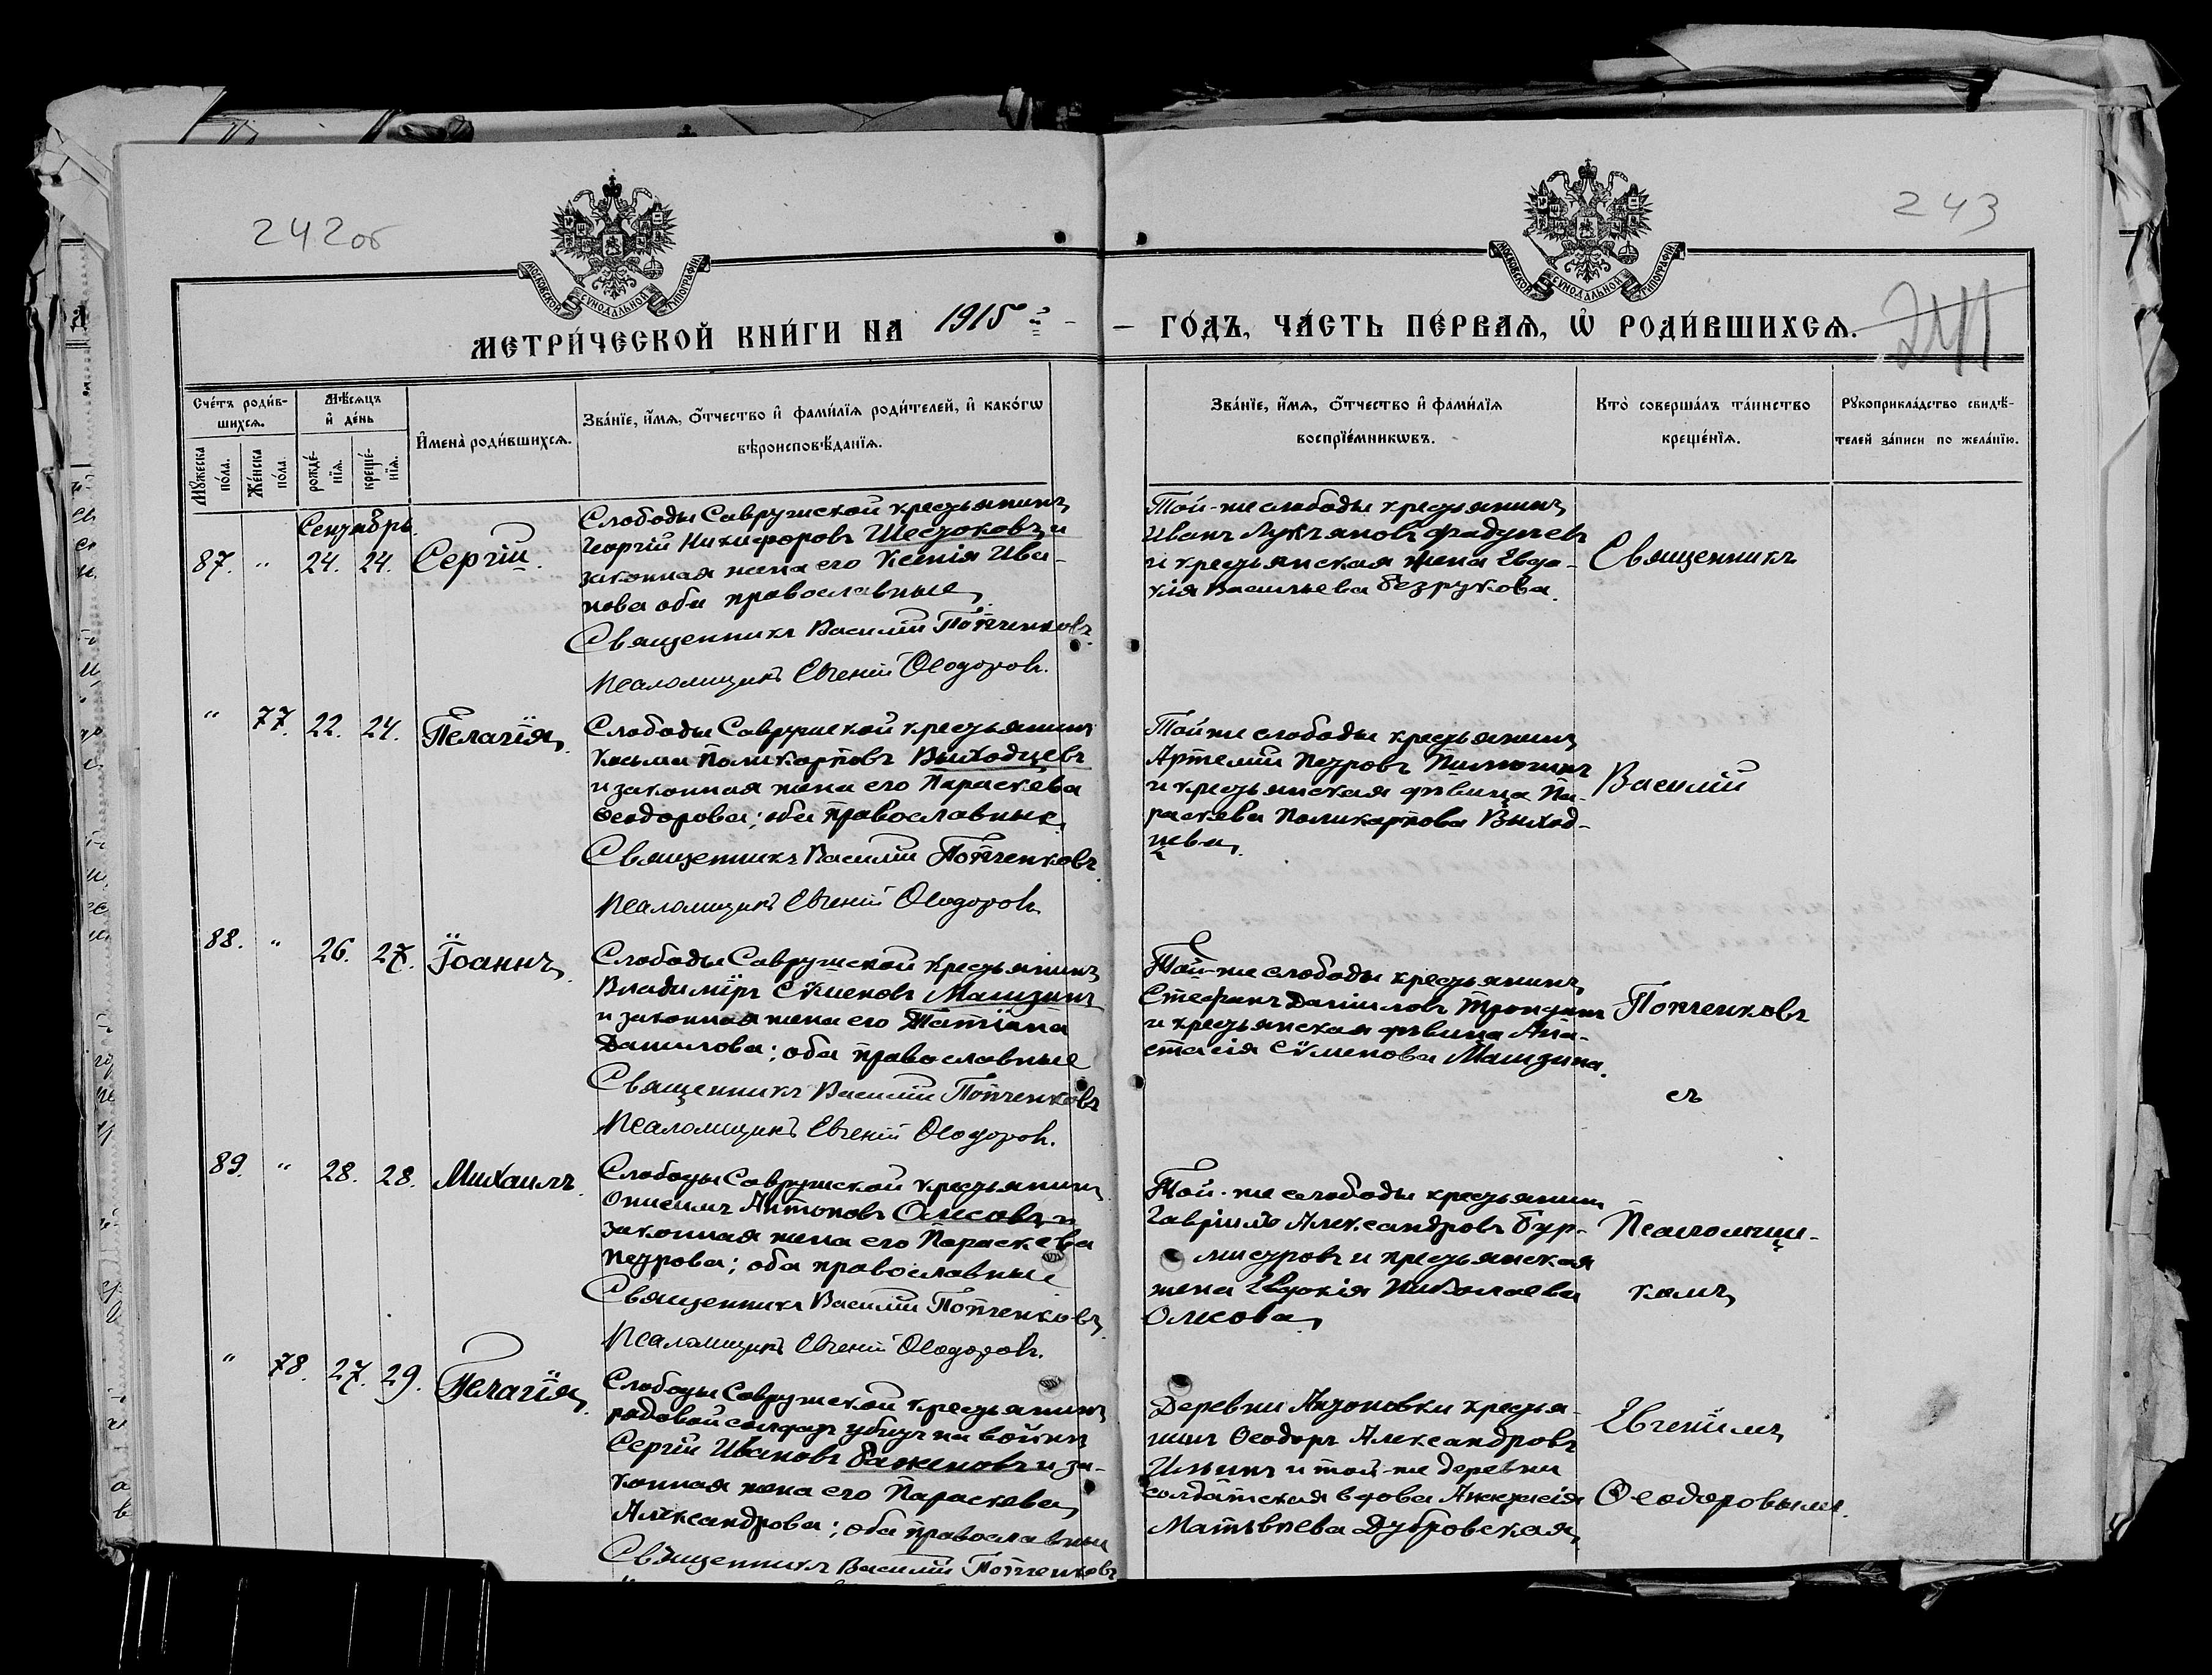 242об
243
МОСКОВСКОЙ СУНОДАЛЬНОЙ ТИПОГРАФІИ
МОСКОВСКОЙ СУНОДАЛЬНОЙ ТИПОГРАФІИ
МЕТРИ́ЧЕСКОЙ КНИ́ГИ НА 1915 й
ГО́ДЪ, ЧА́СТЬ ПЕ́РВАѦ, Ѽ РОДИ́ВШИХСѦ.
241
Сче́тъ роди́в-
шихсѧ.
Мꙋ́жеска
по́ла.
Же́нска
по́ла.
Мѣ́сѧцъ
и҆ де́нь
рожде́-
нїѧ.
креще́-
нїѧ.
И҆мена̀ роди́вшихсѧ.
Зва́нїе, и҆́мѧ, ѻ҆́тчество и҆ фами́лїѧ роди́телей, и҆ како́гѡ
вѣроисповѣ́данїѧ.
Зва́нїе, и҆́мѧ, ѻ҆́тчество и҆ фами́лїѧ
воспрїе́мникѡвъ.
Кто̀ соверша́лъ та́инство
креще́нїѧ.
Рꙋкоприкла́дство свидѣ́-
телей за́писи по жела́нїю.
Сентябрь.
87. " 24. 24. Сергій.
Слободы Саврушской крестьянинъ
Георгій Никифоровъ Шестоковъ и
законная жена его Ксенія Ива-
нова оба православные
Священникъ Василій Попченковъ.
Псаломщикъ Евгеній Ѳеодоровъ.
Той-же слободы крестьянинъ
Иванъ Лукіановъ Фадуневъ
и крестьянская жена Евдо-
кія Васильева Безрукова.
Священникъ
" 77. 22. 24. Пелагія.
Слободы Саврушской крестьянинъ
Косьма Поликарповъ Выходцевъ
и законная жена его Параскева
Ѳеодорова; оба православные.
Священникъ Василій Попченковъ.
Псаломщикъ Евгеній Ѳеодоровъ
Той же слободы крестьянинъ
Артемій Петровъ Пилюгинъ
и крестьянская дѣвица Па-
раскева Поликарпова Выход-
цева.
Василій
88. " 26. 27. Іоаннъ.
Слободы Саврушской крестьянинъ
Владиміръ Сѵмеоновъ
и законная жена его Татіана
Данилова; оба православные
Священникъ Василій Попченковъ
Псаломщикъ Евгеній Ѳеодоровъ.
Той-же слободы крестьянинъ
Стефанъ Даніиловъ
и крестьянская дѣвица Ана-
стасія Сѵмеонова
Попченковъ
съ
89. " 28. 28. Михаилъ.
Слободы Саврушской крестьянинъ
Онисимъ Антоновъ Олисовъ и
законная жена его Параскева
Петрова; оба православные
Священникъ Василій Попченковъ.
Псаломщикъ Евгеній Ѳеодоровъ.
Той-же слободы крестьянинъ
Гавріилъ Александровъ Бур-
мистровъ и крестьянская
жена Евдокія Николаева
Олисова.
Псаломщи-
комъ
" 78. 27. 29. Пелагія.
Слободы Саврушской крестьянинъ
рядовой солдатъ убитъ на войнѣ
Сергій Ивановъ Баженовъ и за-
конная жена его Параскева
Александрова; оба православные
Священникъ Василій Попченковъ
Деревни Антоновки крестья-
нинъ Ѳеодоръ Александровъ
Ильинъ и той-же деревни
солдатская вдова Анастасія
Матвѣева Дубровская.
Евгеніемъ
Ѳеодоровымъ.